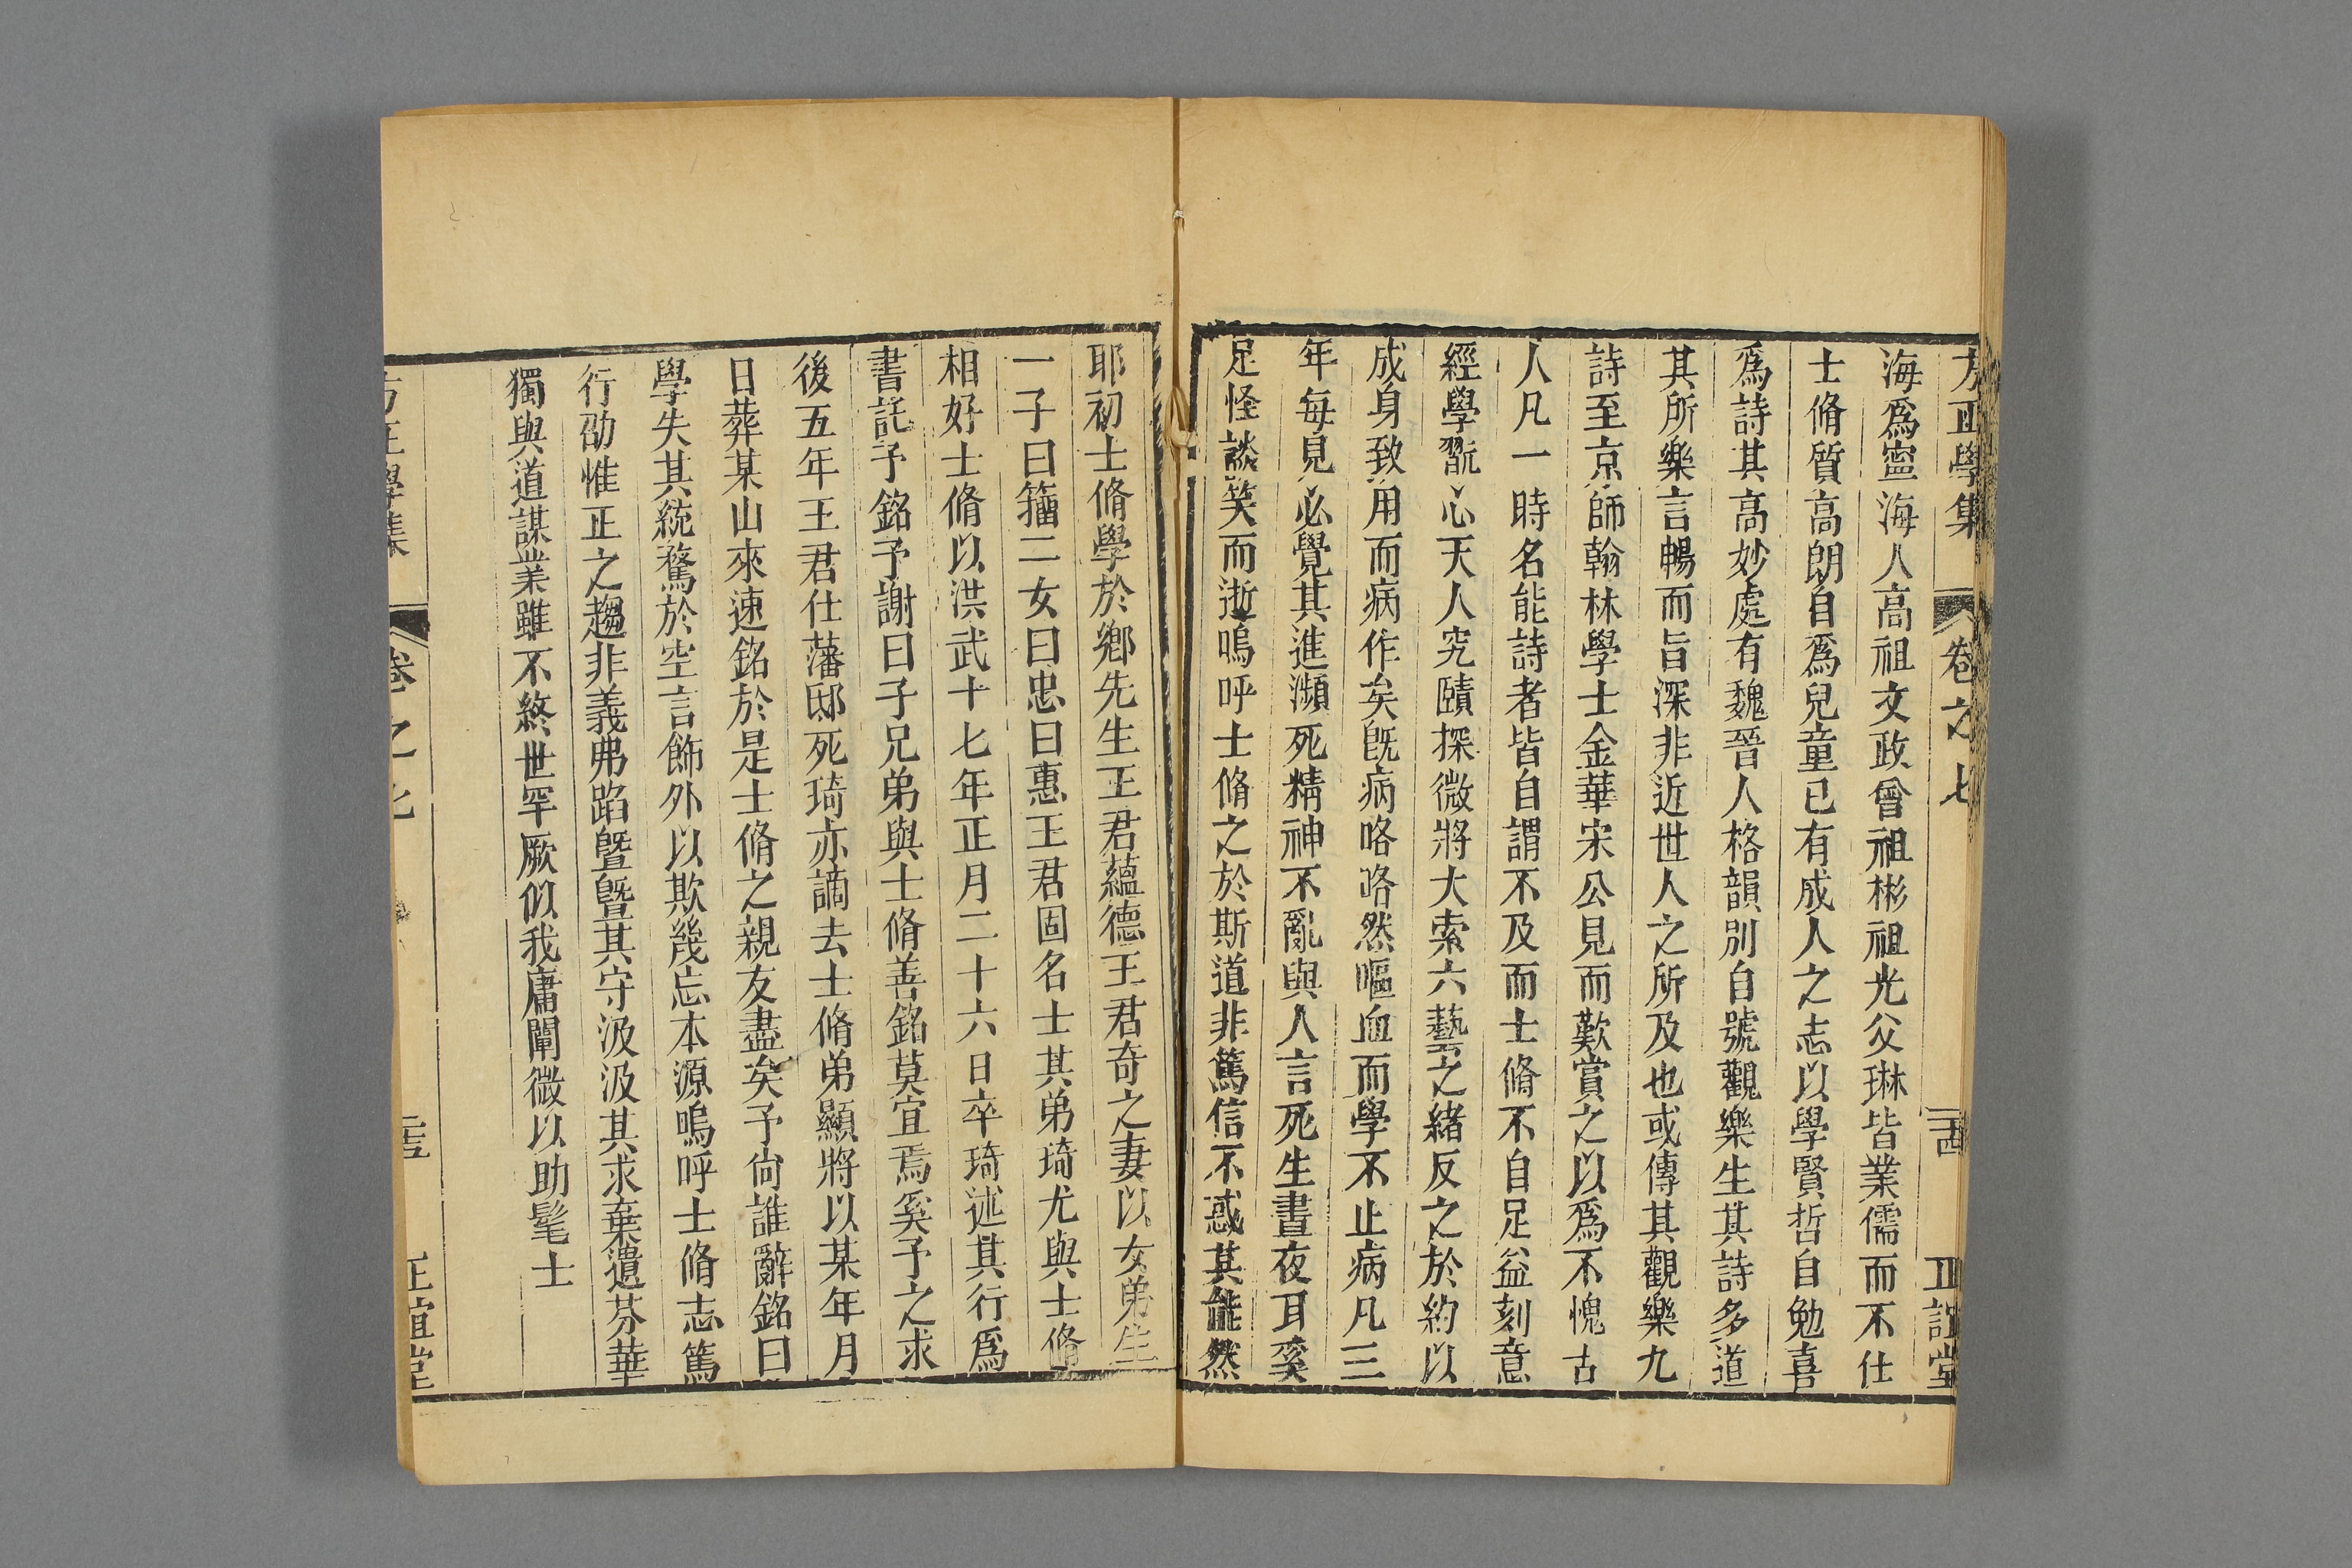 方正學集 卷之七 三西 正誼堂
海爲寧海人高祖文政曾祖彬祖光父琳皆業儒而不仕
士脩質高朗自爲兒童已有成人之志以學賢哲自勉喜
爲詩其高妙處有魏晉人格韻別自號觀樂生其詩多道
其所樂言暢而旨深非近世人之所及也或傳其觀樂九
詩至京師翰林學士金華宋公見而歎賞之以爲不愧古
人凡一時名能詩者皆自謂不及而士脩不自足益刻意
經學翫心天人究賾探微將大索六藝之緒反之於約以
成身致用而病作矣旣病咯咯然嘔血而學不止病凡三
年每見必覺其進瀕死精神不亂與人言死生晝夜耳奚
足怪談笑而逝嗚呼士脩之於斯道非篤信不惑其能然
耶初士脩學於鄉先生王君蘊德王君奇之妻以女弟生
一子曰籀二女曰忠曰惠王君固名士其弟琦尤與士脩
相好士脩以洪武十七年正月二十六日卒琦述其行爲
書託予銘予謝曰子兄弟與士脩善銘莫宜焉奚予之求
後五年王君仕藩邸死琦亦謫去士脩弟顯將以某年月
日葬某山來速銘於是士脩之親友盡矣予尙誰辭銘曰
學失其統騖於空言飾外以欺幾忘本源嗚呼士脩志篤
行劭惟正之趨非義弗蹈曁曁其守汲汲其求棄遺芬華
獨與道謀業雖不終世罕厥似我庸闡微以助髦士
方正學集 卷之七 正誼堂